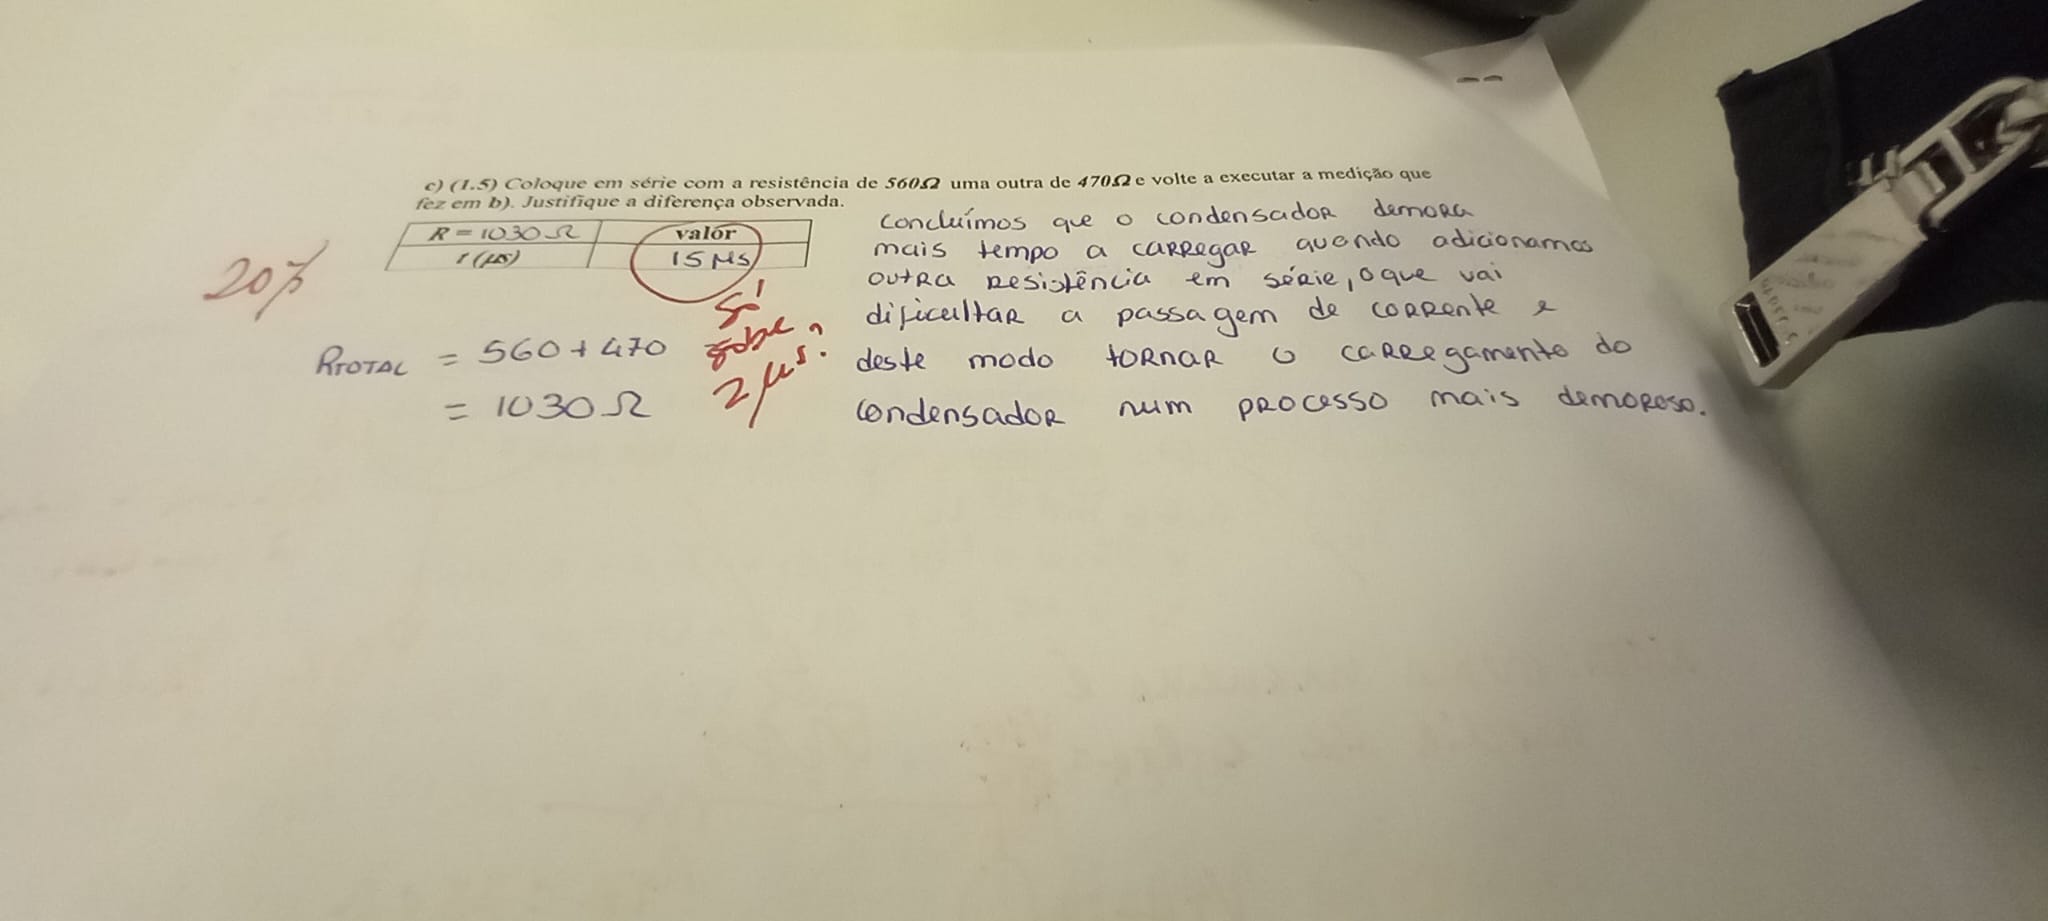 c) (1.5) Coloque em série com a resistência de 560Ω uma outra de 470Ω e volte a executar a medição que
fez em b). Justifique a diferença observada.
R = 1030 Ω valor
t (μs) 15 μs
20%
só
sobe
2 μs?
RTOTAL = 560 + 470
= 1030 Ω
Concluímos que o condensador demora
mais tempo a carregar quando adicionamos
outra resistência em série, o que vai
dificultar a passagem de corrente e
deste modo tornar o carregamento do
condensador num processo mais demoroso.